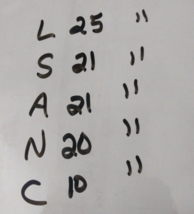 L 25 "
S 21 "
A 21 "
N 20 "
C 10 "